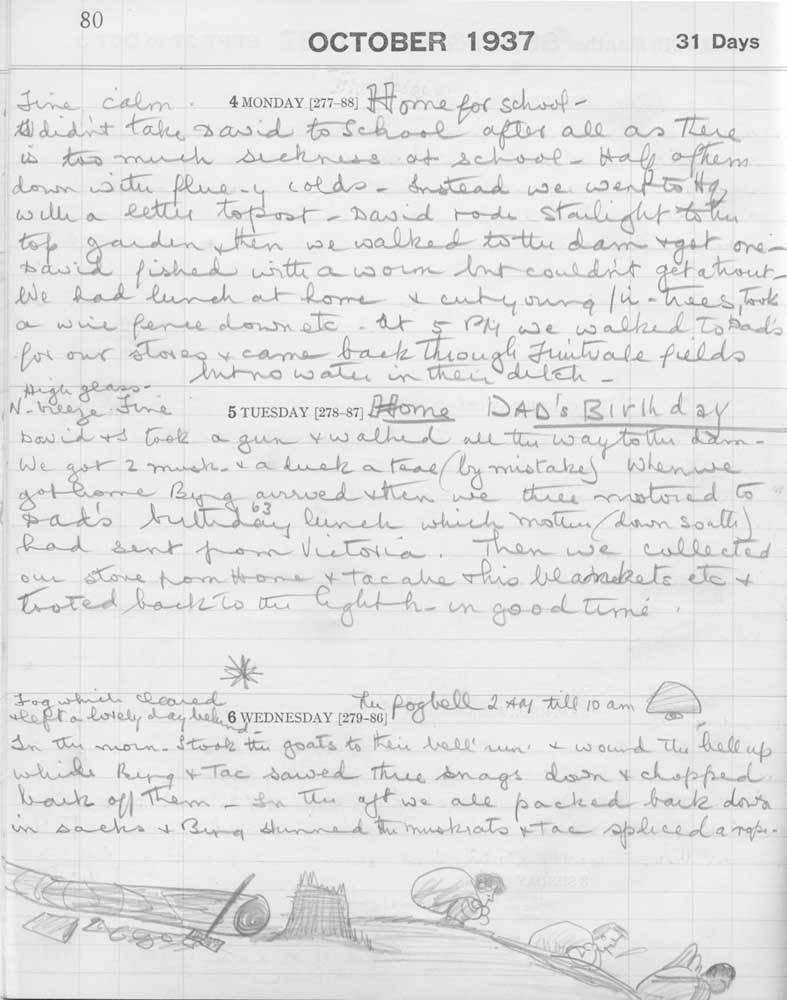 80
OCTOBER 1937 31 Days
Fine calm. 4 MONDAY [277-88] Home for school -
didn't take David to School after all as There
is too much sickness at school - Half of them
down with flue-y colds - Instead we went to Hq
with a letter to post - David rode Starlight to the
top garden & then we walked to the dam & got one -
David fished with a worm but couldn't get a trout -
We had lunch at home & cut young fir-trees, took
a wire fence down etc. At 5 PM we walked to Dad's
for our stores & came back through Fruitvale fields
but no water in their ditch -
High glass -
N. breeze. Fine 5 TUESDAY [278-87] Home DAD's Birthday
David & I took a gun & walked all the way to the dam -
We got 2 musk. & a duck a teal (by mistake) When we
got home Byng arrived & then we three motored to
Dad's birthday 63 lunch which mother (down south)
had sent from Victoria. Then we collected
our store from Home & Tac & his blankets etc &
tooted back to the lighth- in good time.
Fog which cleared The fogbell 2 AM till 10 am
& left a lovely day behind - 6 WEDNESDAY [279-86]
In the morn. I took the goats to their bell 'run' & wound the bell up
while Byng & Tac sawed three snags down & chopped
bark off them - In the aft we all packed bark down
in sacks & Byng skinned the muskrats & Tac spliced a rope.